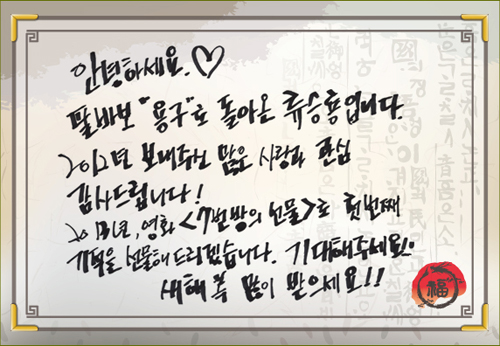 안녕하세요. ♡
딸바보 "용구"로 돌아온 류승룡입니다.
2012년 보내주신 많은 사랑과 관심
감사드립니다!
2013년, 영화 <7번방의 선물>로 첫번째
기적을 선물해드리겠습니다. 기대해주세요!
새해 복 많이 받으세요!!
福